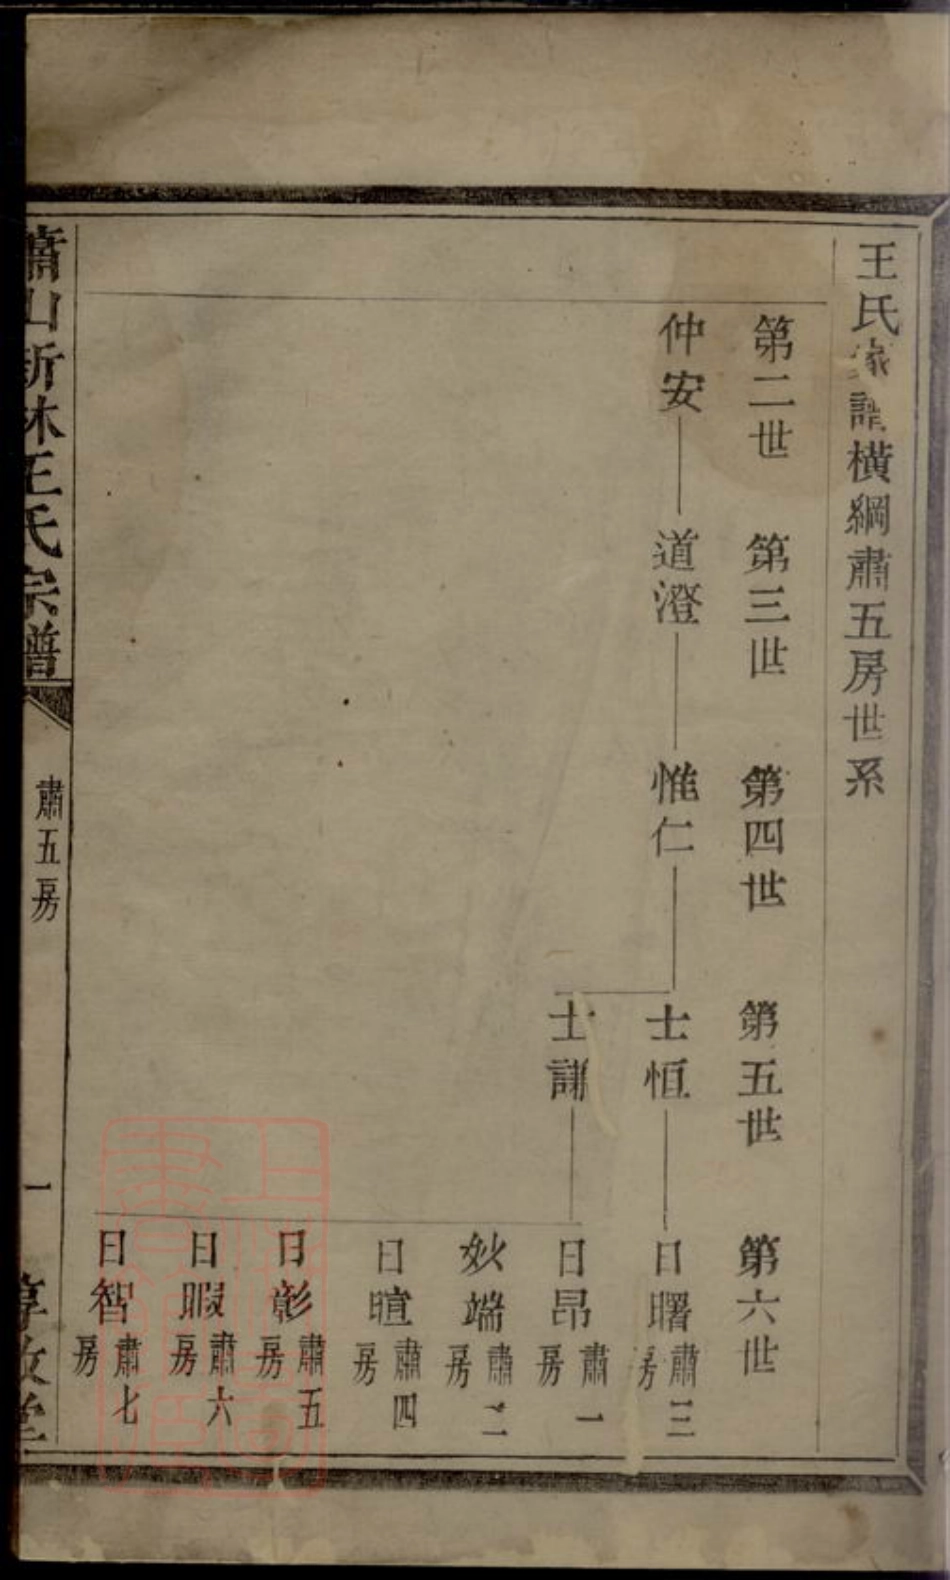 王氏家譜橫綱肅五房世系
第二世 第三世 第四世 第五世 第六世
仲安 道澄 惟仁 士恒 日曙 肅三房
士謙 日昂 肅一房
妙端 肅二房
日暄 肅四房
日彰 肅五房
日暇 肅六房
日智 肅七房
蕭山新林王氏宗譜 肅五房 一